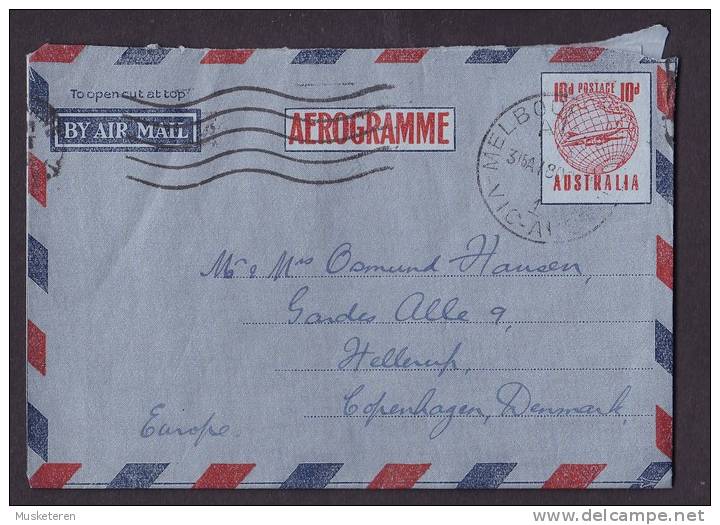 To open cut at top
BY AIR MAIL
AEROGRAMME
10d POSTAGE 10d
AUSTRALIA
MELBOU
VIC-AU
Mr & Mrs Osmund Hansen,
Gardes Alle 9,
Hellerup,
Copenhagen, Denmark,
Europe.
Musketeren
delcampe.net